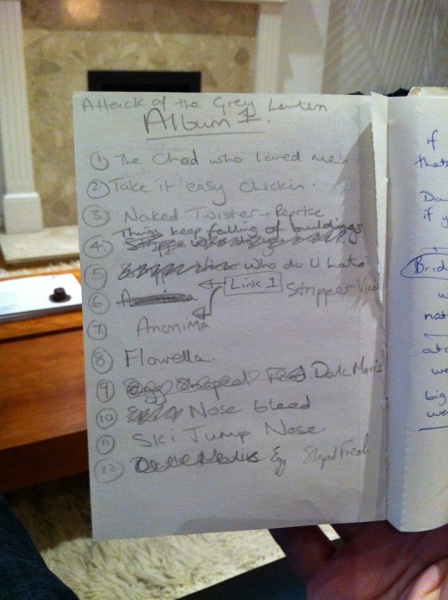 Attack of the Grey Lantern
Album 1.
① The Chad who loved me
② Take it easy chickin.
③ Naked Twister + Reprise
Things keep falling of buildings
④
⑤ Who do U hate
⑥ Link 1 Stripper Vicar
⑦ Anonima
⑧ Flowella
⑨ Egg Shaped Fred Dark Mavis
⑩ Nose bleed
⑪ Ski Jump Nose.
⑫ Dark Mavis Egg Shaped Fred
if
thats
if y
Brid
w
nat
we
big
we